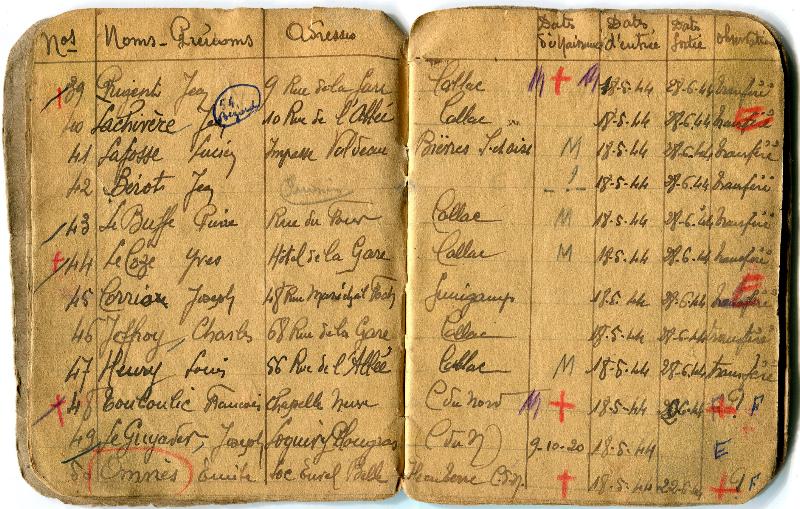 Nos Noms-Prénoms Adresses Date de Naissance Date d'entrée Date Sortie Observations
39 Rigent Jean 9 Rue de la Gare Callac M + M 18-5-44 28-6-44 transféré
40 Lachivère 10 Rue de l'Allée Callac 18-5-44 28-6-44 transféré
41 Lafosse Lucien Impasse Bières S.&Oise M 18-5-44 28-6-44 transféré
42 Bérots Jean ? 18-5-44 28-6-44 transféré
43 Le Buffe Pierre Rue du Four Callac M 18-5-44 28-6-44 transféré
44 Le Coze Yves Hôtel de la Gare Callac M 18-5-44 28-6-44 transféré
45 Corrian Joseph 48 Rue Maréchal Foch Guingamp 18-5-44 28-6-44 transféré E
46 Joffroy, Charles 68 Rue de la Gare Callac 18-5-44 28-6-44 transféré
47 Henry Louis 56 Rue de l'Allée Callac M 18-5-44 28-6-44 transféré
48 Toutoulic François Chapelle Neuve C du Nord M + 18-5-44 + F
49 Le Guyader, Joseph Loguivy Plougras C du N 9-10-20 18-5-44 E
50 Omnès Emile + 18-5-44 + F